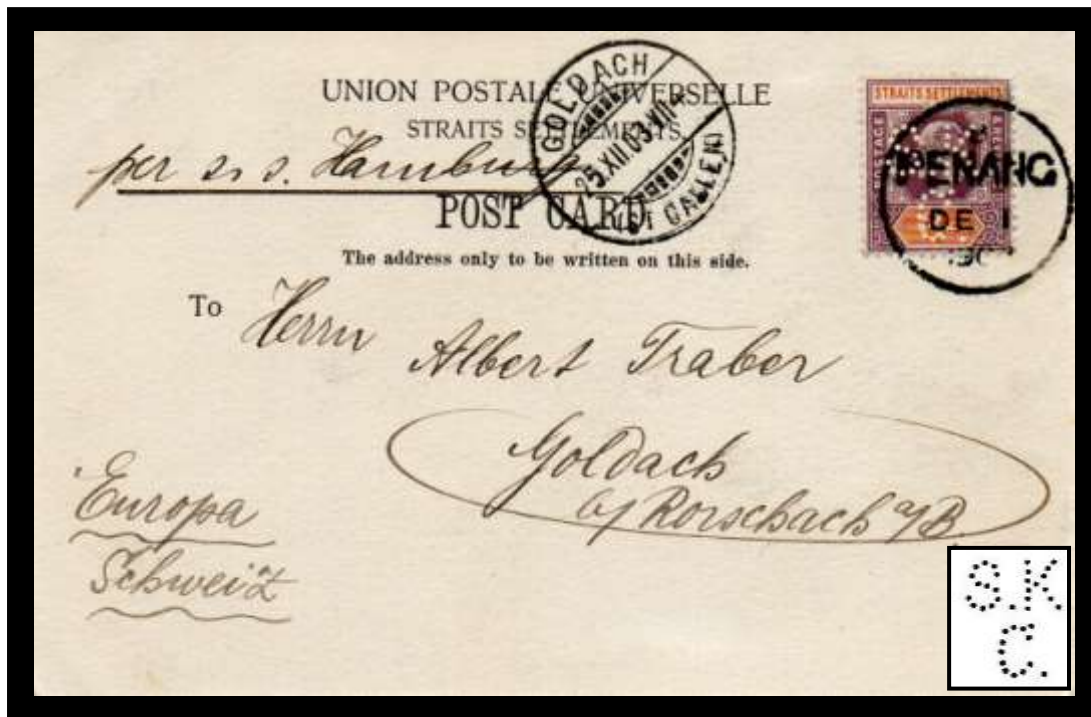 UNION POSTALE UNIVERSELLE
STRAITS SETTLEMENTS
per s. s. Hamburg
POST CARD
The address only to be written on this side.
GOLDACH
25.XII.03.VII
(ST GALLEN)
STRAITS SETTLEMENTS
POSTAGE &
PENANG
DE 1
190
To Herrn Albert Traber
Goldach
b/ Rorschach a/B.
Europa
Schweiz
S.K
C.